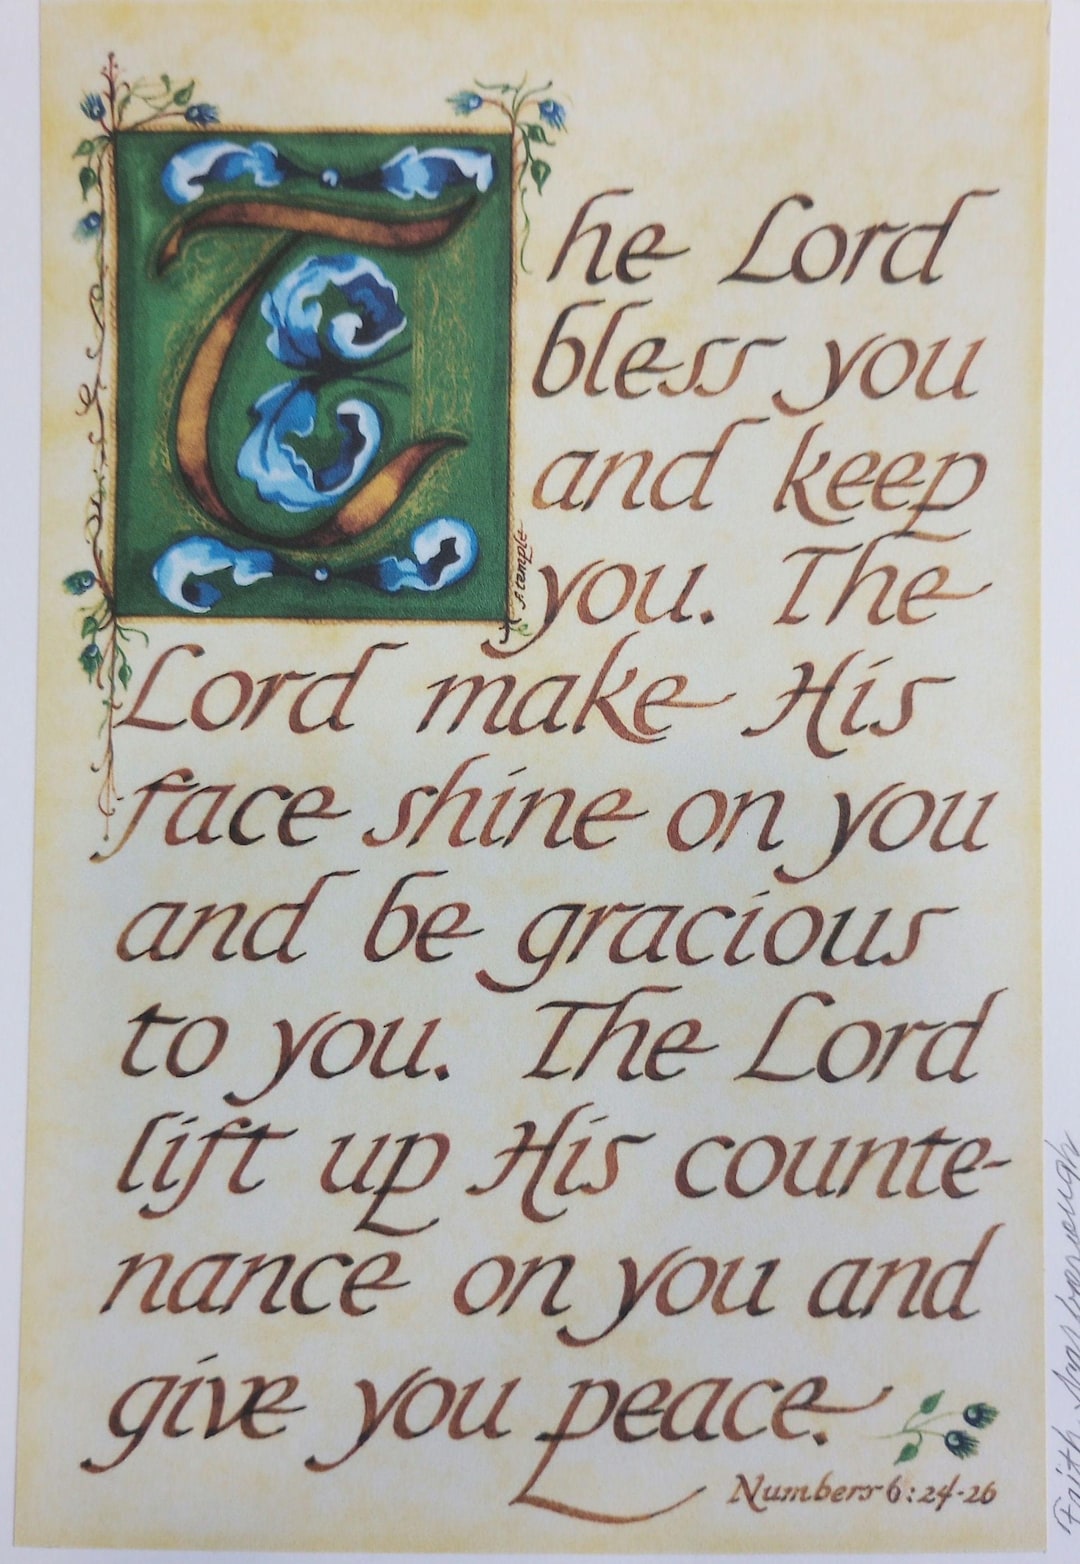 The Lord
bless you
and keep
you. The
Lord make His
face shine on you
and be gracious
to you. The Lord
lift up His counte-
nance on you and
give you peace.
Numbers 6:24-26
Faith